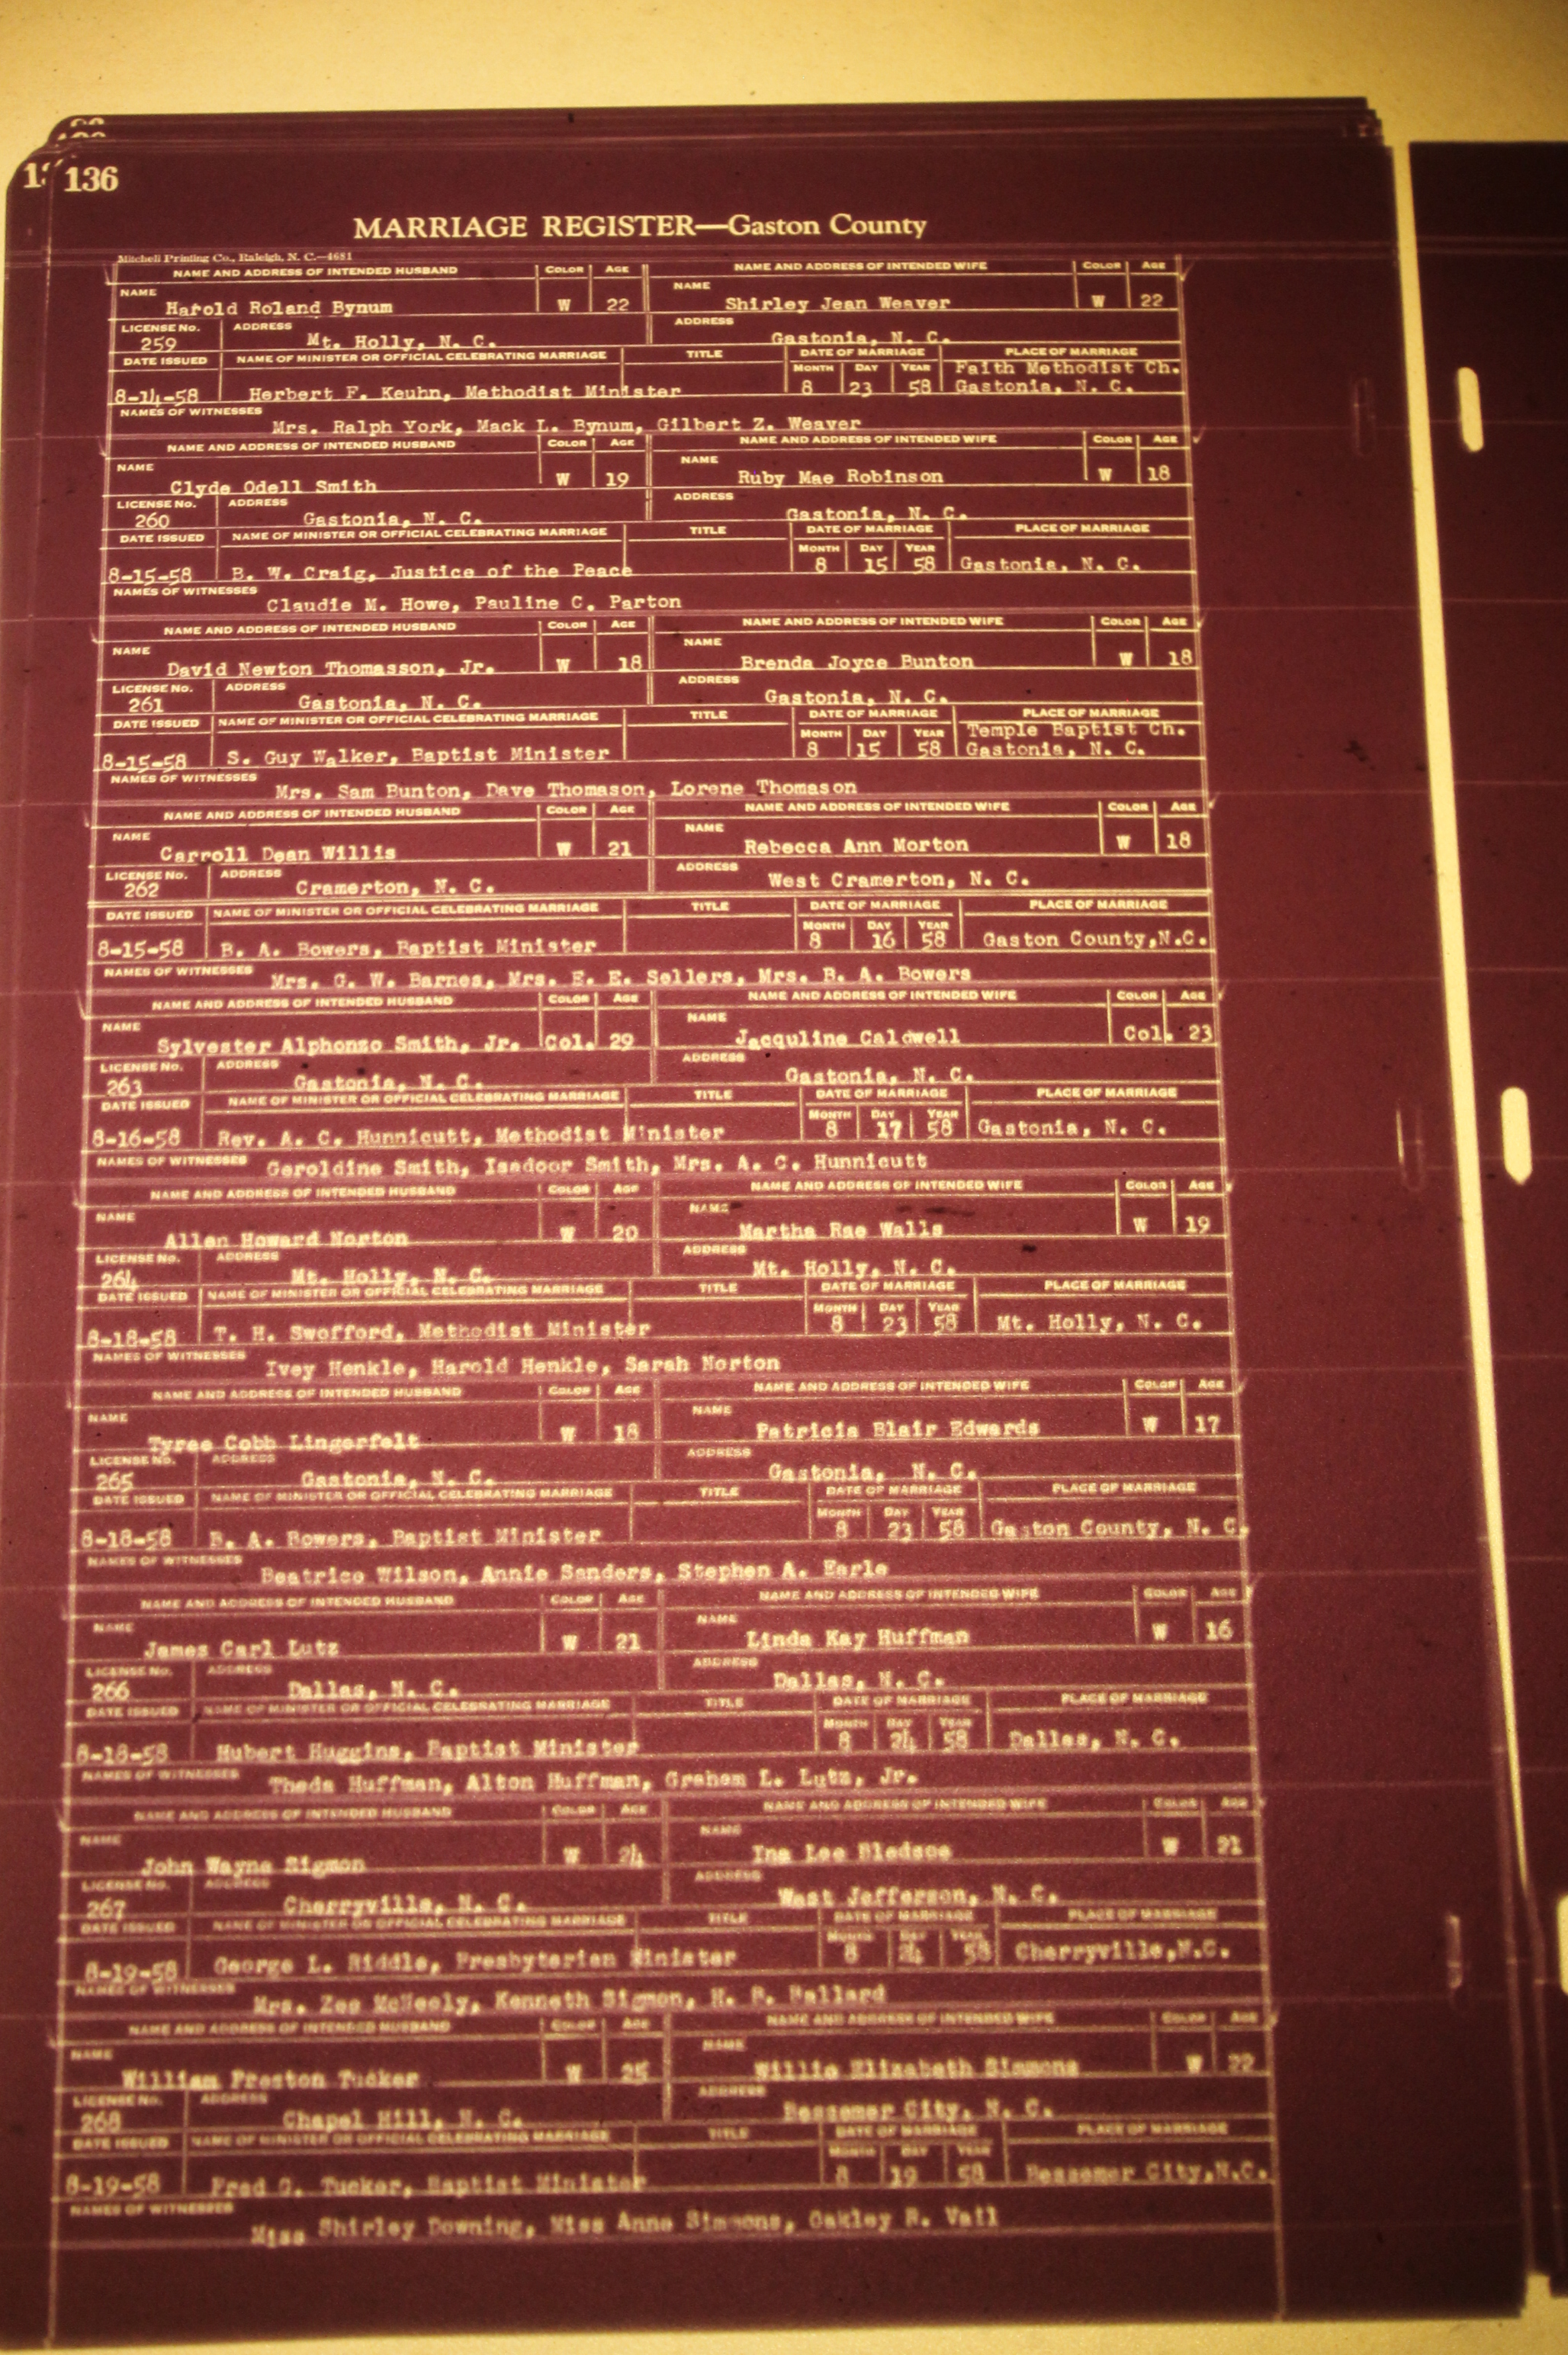 136
MARRIAGE REGISTER—Gaston County
Mitchell Printing Co., Raleigh, N. C.—4681
NAME AND ADDRESS OF INTENDED HUSBAND COLOR AGE NAME AND ADDRESS OF INTENDED WIFE COLOR AGE
NAME Harold Roland Bynum W 22 NAME Shirley Jean Weaver W 22
LICENSE No. 259 ADDRESS Mt. Holly, N. C. ADDRESS Gastonia, N. C.
DATE ISSUED NAME OF MINISTER OR OFFICIAL CELEBRATING MARRIAGE TITLE DATE OF MARRIAGE PLACE OF MARRIAGE
MONTH DAY YEAR Faith Methodist Ch.
8-14-58 Herbert F. Keuhn, Methodist Minister 8 23 58 Gastonia, N. C.
NAMES OF WITNESSES Mrs. Ralph York, Mack L. Bynum, Gilbert Z. Weaver
NAME AND ADDRESS OF INTENDED HUSBAND COLOR AGE NAME AND ADDRESS OF INTENDED WIFE COLOR AGE
NAME Clyde Odell Smith W 19 NAME Ruby Mae Robinson W 18
LICENSE No. 260 ADDRESS Gastonia, N. C. ADDRESS Gastonia, N. C.
DATE ISSUED NAME OF MINISTER OR OFFICIAL CELEBRATING MARRIAGE TITLE DATE OF MARRIAGE PLACE OF MARRIAGE
MONTH DAY YEAR
8-15-58 B. W. Craig, Justice of the Peace 8 15 58 Gastonia, N. C.
NAMES OF WITNESSES Claudie M. Howe, Pauline C. Parton
NAME AND ADDRESS OF INTENDED HUSBAND COLOR AGE NAME AND ADDRESS OF INTENDED WIFE COLOR AGE
NAME David Newton Thomasson, Jr. W 18 NAME Brenda Joyce Bunton W 18
LICENSE No. 261 ADDRESS Gastonia, N. C. ADDRESS Gastonia, N. C.
DATE ISSUED NAME OF MINISTER OR OFFICIAL CELEBRATING MARRIAGE TITLE DATE OF MARRIAGE PLACE OF MARRIAGE
MONTH DAY YEAR Temple Baptist Ch.
8-15-58 S. Guy Walker, Baptist Minister 8 15 58 Gastonia, N. C.
NAMES OF WITNESSES Mrs. Sam Bunton, Dave Thomason, Lorene Thomason
NAME AND ADDRESS OF INTENDED HUSBAND COLOR AGE NAME AND ADDRESS OF INTENDED WIFE COLOR AGE
NAME Carroll Dean Willis W 21 NAME Rebecca Ann Morton W 18
LICENSE No. 262 ADDRESS Cramerton, N. C. ADDRESS West Cramerton, N. C.
DATE ISSUED NAME OF MINISTER OR OFFICIAL CELEBRATING MARRIAGE TITLE DATE OF MARRIAGE PLACE OF MARRIAGE
MONTH DAY YEAR
8-15-58 B. A. Bowers, Baptist Minister 8 16 58 Gaston County,N.C.
NAMES OF WITNESSES Mrs. G. W. Barnes, Mrs. E. E. Sellers, Mrs. B. A. Bowers
NAME AND ADDRESS OF INTENDED HUSBAND COLOR AGE NAME AND ADDRESS OF INTENDED WIFE COLOR AGE
NAME Sylvester Alphonzo Smith, Jr. Col. 29 NAME Jacquline Caldwell Col. 23
LICENSE No. 263 ADDRESS Gastonia, N. C. ADDRESS Gastonia, N. C.
DATE ISSUED NAME OF MINISTER OR OFFICIAL CELEBRATING MARRIAGE TITLE DATE OF MARRIAGE PLACE OF MARRIAGE
MONTH DAY YEAR
8-16-58 Rev. A. C. Hunnicutt, Methodist Minister 8 17 58 Gastonia, N. C.
NAMES OF WITNESSES Geroldine Smith, Isadoor Smith, Mrs. A. C. Hunnicutt
NAME AND ADDRESS OF INTENDED HUSBAND COLOR AGE NAME AND ADDRESS OF INTENDED WIFE COLOR AGE
NAME Allen Howard Norton W 20 NAME Martha Rae Walls W 19
LICENSE No. 264 ADDRESS Mt. Holly, N. C. ADDRESS Mt. Holly, N. C.
DATE ISSUED NAME OF MINISTER OR OFFICIAL CELEBRATING MARRIAGE TITLE DATE OF MARRIAGE PLACE OF MARRIAGE
MONTH DAY YEAR
8-18-58 T. H. Swofford, Methodist Minister 8 23 58 Mt. Holly, N. C.
NAMES OF WITNESSES Ivey Henkle, Harold Henkle, Sarah Norton
NAME AND ADDRESS OF INTENDED HUSBAND COLOR AGE NAME AND ADDRESS OF INTENDED WIFE COLOR AGE
NAME Tyree Cobb Lingerfelt W 18 NAME Patricia Blair Edwards W 17
LICENSE No. 265 ADDRESS Gastonia, N. C. ADDRESS Gastonia, N. C.
DATE ISSUED NAME OF MINISTER OR OFFICIAL CELEBRATING MARRIAGE TITLE DATE OF MARRIAGE PLACE OF MARRIAGE
MONTH DAY YEAR
8-18-58 B. A. Bowers, Baptist Minister 8 23 58 Gaston County, N. C.
NAMES OF WITNESSES Beatrice Wilson, Annie Sanders, Stephen A. Earle
NAME AND ADDRESS OF INTENDED HUSBAND COLOR AGE NAME AND ADDRESS OF INTENDED WIFE COLOR AGE
NAME James Carl Lutz W 21 NAME Linda Kay Huffman W 16
LICENSE No. 266 ADDRESS Dallas, N. C. ADDRESS Dallas, N. C.
DATE ISSUED NAME OF MINISTER OR OFFICIAL CELEBRATING MARRIAGE TITLE DATE OF MARRIAGE PLACE OF MARRIAGE
MONTH DAY YEAR
8-18-58 Hubert Huggins, Baptist Minister 8 24 58 Dallas, N. C.
NAMES OF WITNESSES Theda Huffman, Alton Huffman, Graham L. Lutz, Jr.
NAME AND ADDRESS OF INTENDED HUSBAND COLOR AGE NAME AND ADDRESS OF INTENDED WIFE COLOR AGE
NAME John Wayne Sigmon W 24 NAME Ina Lee Bledsoe W 21
LICENSE No. 267 ADDRESS Cherryville, N. C. ADDRESS West Jefferson, N. C.
DATE ISSUED NAME OF MINISTER OR OFFICIAL CELEBRATING MARRIAGE TITLE DATE OF MARRIAGE PLACE OF MARRIAGE
MONTH DAY YEAR
8-19-58 George L. Riddle, Presbyterian Minister 8 24 58 Cherryville,N.C.
NAMES OF WITNESSES Mrs. Zee McNeely, Kenneth Sigmon, H. B. Ballard
NAME AND ADDRESS OF INTENDED HUSBAND COLOR AGE NAME AND ADDRESS OF INTENDED WIFE COLOR AGE
NAME William Preston Tucker W 25 NAME Willie Elizabeth Simmons W 22
LICENSE No. 268 ADDRESS Chapel Hill, N. C. ADDRESS Bessemer City, N. C.
DATE ISSUED NAME OF MINISTER OR OFFICIAL CELEBRATING MARRIAGE TITLE DATE OF MARRIAGE PLACE OF MARRIAGE
MONTH DAY YEAR
8-19-58 Fred G. Tucker, Baptist Minister 8 19 58 Bessemer City,N.C.
NAMES OF WITNESSES Miss Shirley Downing, Miss Anne Simmons, Oakley R. Vail